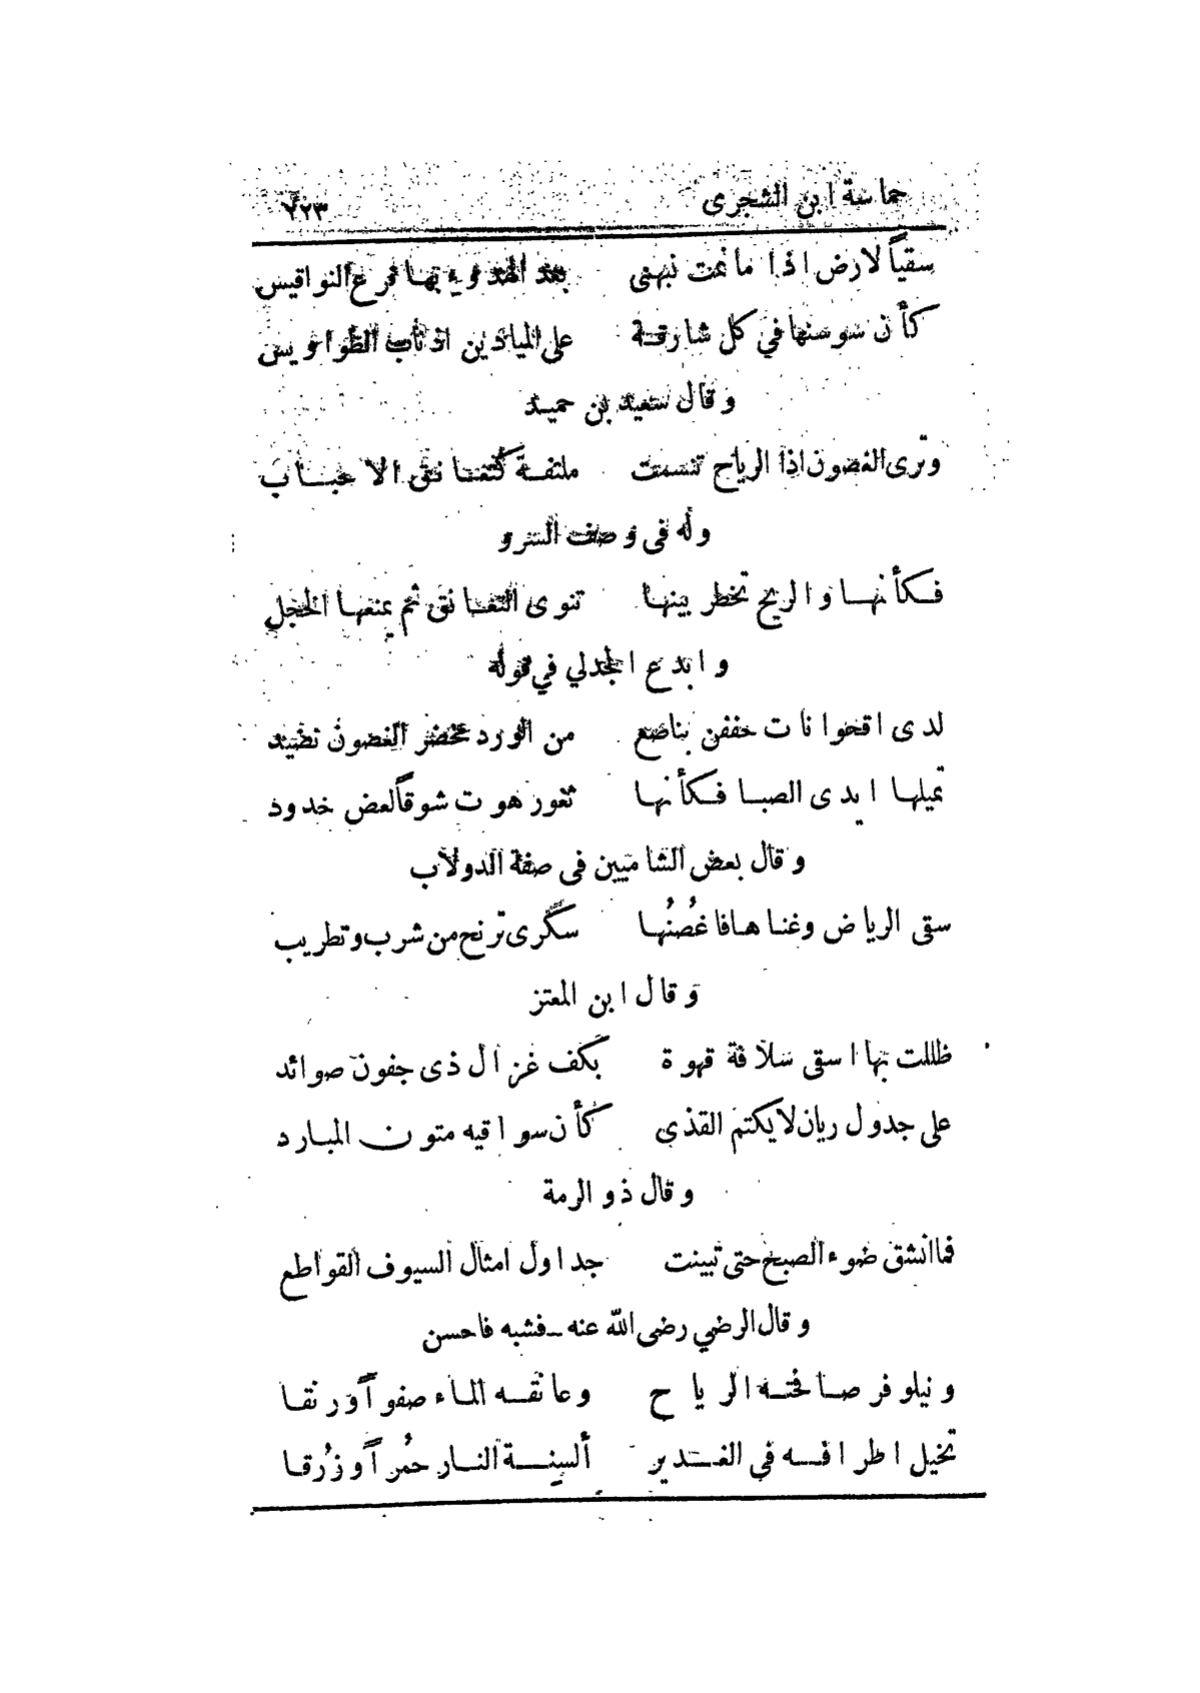 حماسة ابن الشجرى ٢٢٣
سقياً لارض اذا ما نمت نبهنى بعد الهدوء بها قرع النواقيس
كأن سوسنها في كل شارقة على الميادين اذناب الطواويس
وقال سعيد بن حميد
وترى الغصون اذا الرياح تنسمت ملتفة كتعانقى الاحباب
وله فى وصف السرو
فكأنها والريح تخطر بينها تنوى التعانق ثم يمنعها الخجل
وابدع الجدلي في قوله
لدى اقحوانات حففن بناضع من الورد مخضر الغصون نضيد
تميلها ايدى الصبا فكأنها ثغور هوت شوقاً لعض خدود
وقال بعض الشاميين فى صفة الدولاب
سقى الرياض وغناها فاغصُنُها سكرى ترنح من شرب وتطريب
وقال ابن المعتز
ظللت بها اسقى سلافة قهوة بكف غزال ذى جفون صوائد
على جدول ريان لا يكتم القذى كأن سواقيه متون المبارد
وقال ذو الرمة
فما انشق ضوء الصبح حتى تبينت جداول امثال السيوف القواطع
وقال الرضي رضى الله عنه ــ فشبه فاحسن
ونيلوفر صافحته الرياح وعانقه الماء صفواً ورنقا
تخيل اطرافه في الغدير ألسنة النار حُمراً وزُرقا